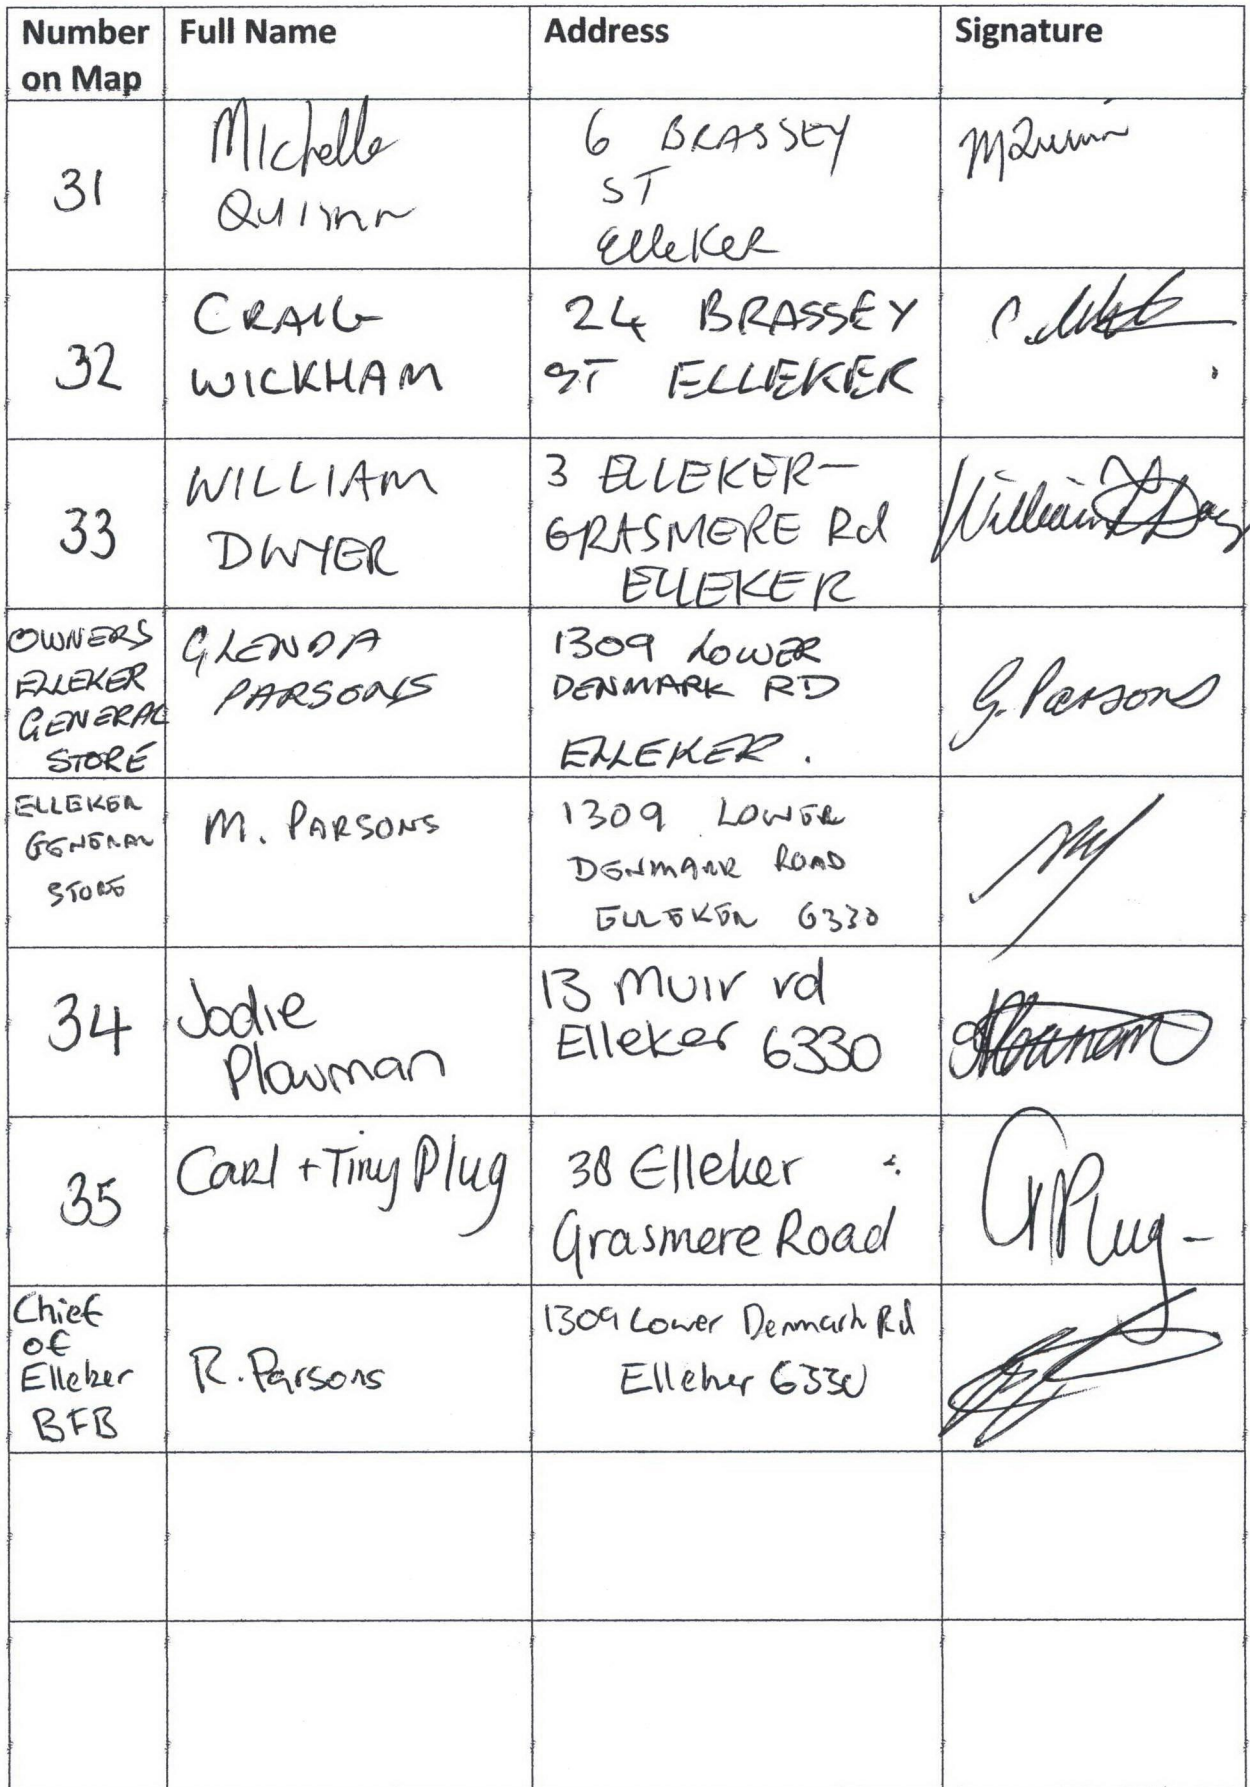 Number on Map Full Name Address Signature
31 Michelle Quinn 6 BRASSEY ST Elleker MQuinn
32 CRAIG WICKHAM 24 BRASSEY ST ELLEKER
33 WILLIAM DWYER 3 ELLEKER- GRASMERE Rd ELLEKER William
OWNERS ELLEKER GENERAL STORE GLENDA PARSONS 1309 LOWER DENMARK RD ELLEKER. G. Parsons
ELLEKER GENERAL STORE M. PARSONS 1309 LOWER DENMARK ROAD ELLEKER 6330
34 Jodie Plowman 13 Muir rd Elleker 6330
35 Carl + Tiny Plug 38 Elleker Grasmere Road Plug
Chief of Elleker BFB R. Parsons 1309 Lower Denmark Rd Elleker 6330